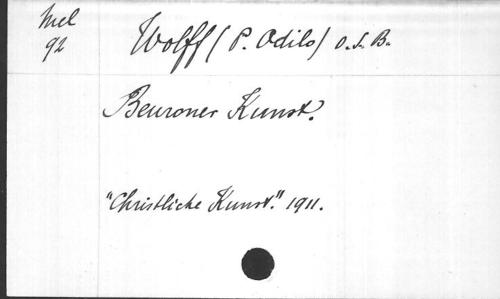 Mel
92
Wolff (P. Odilo) O.S.B.
Beuroner Kunst.
"Christliche Kunst." 1911.